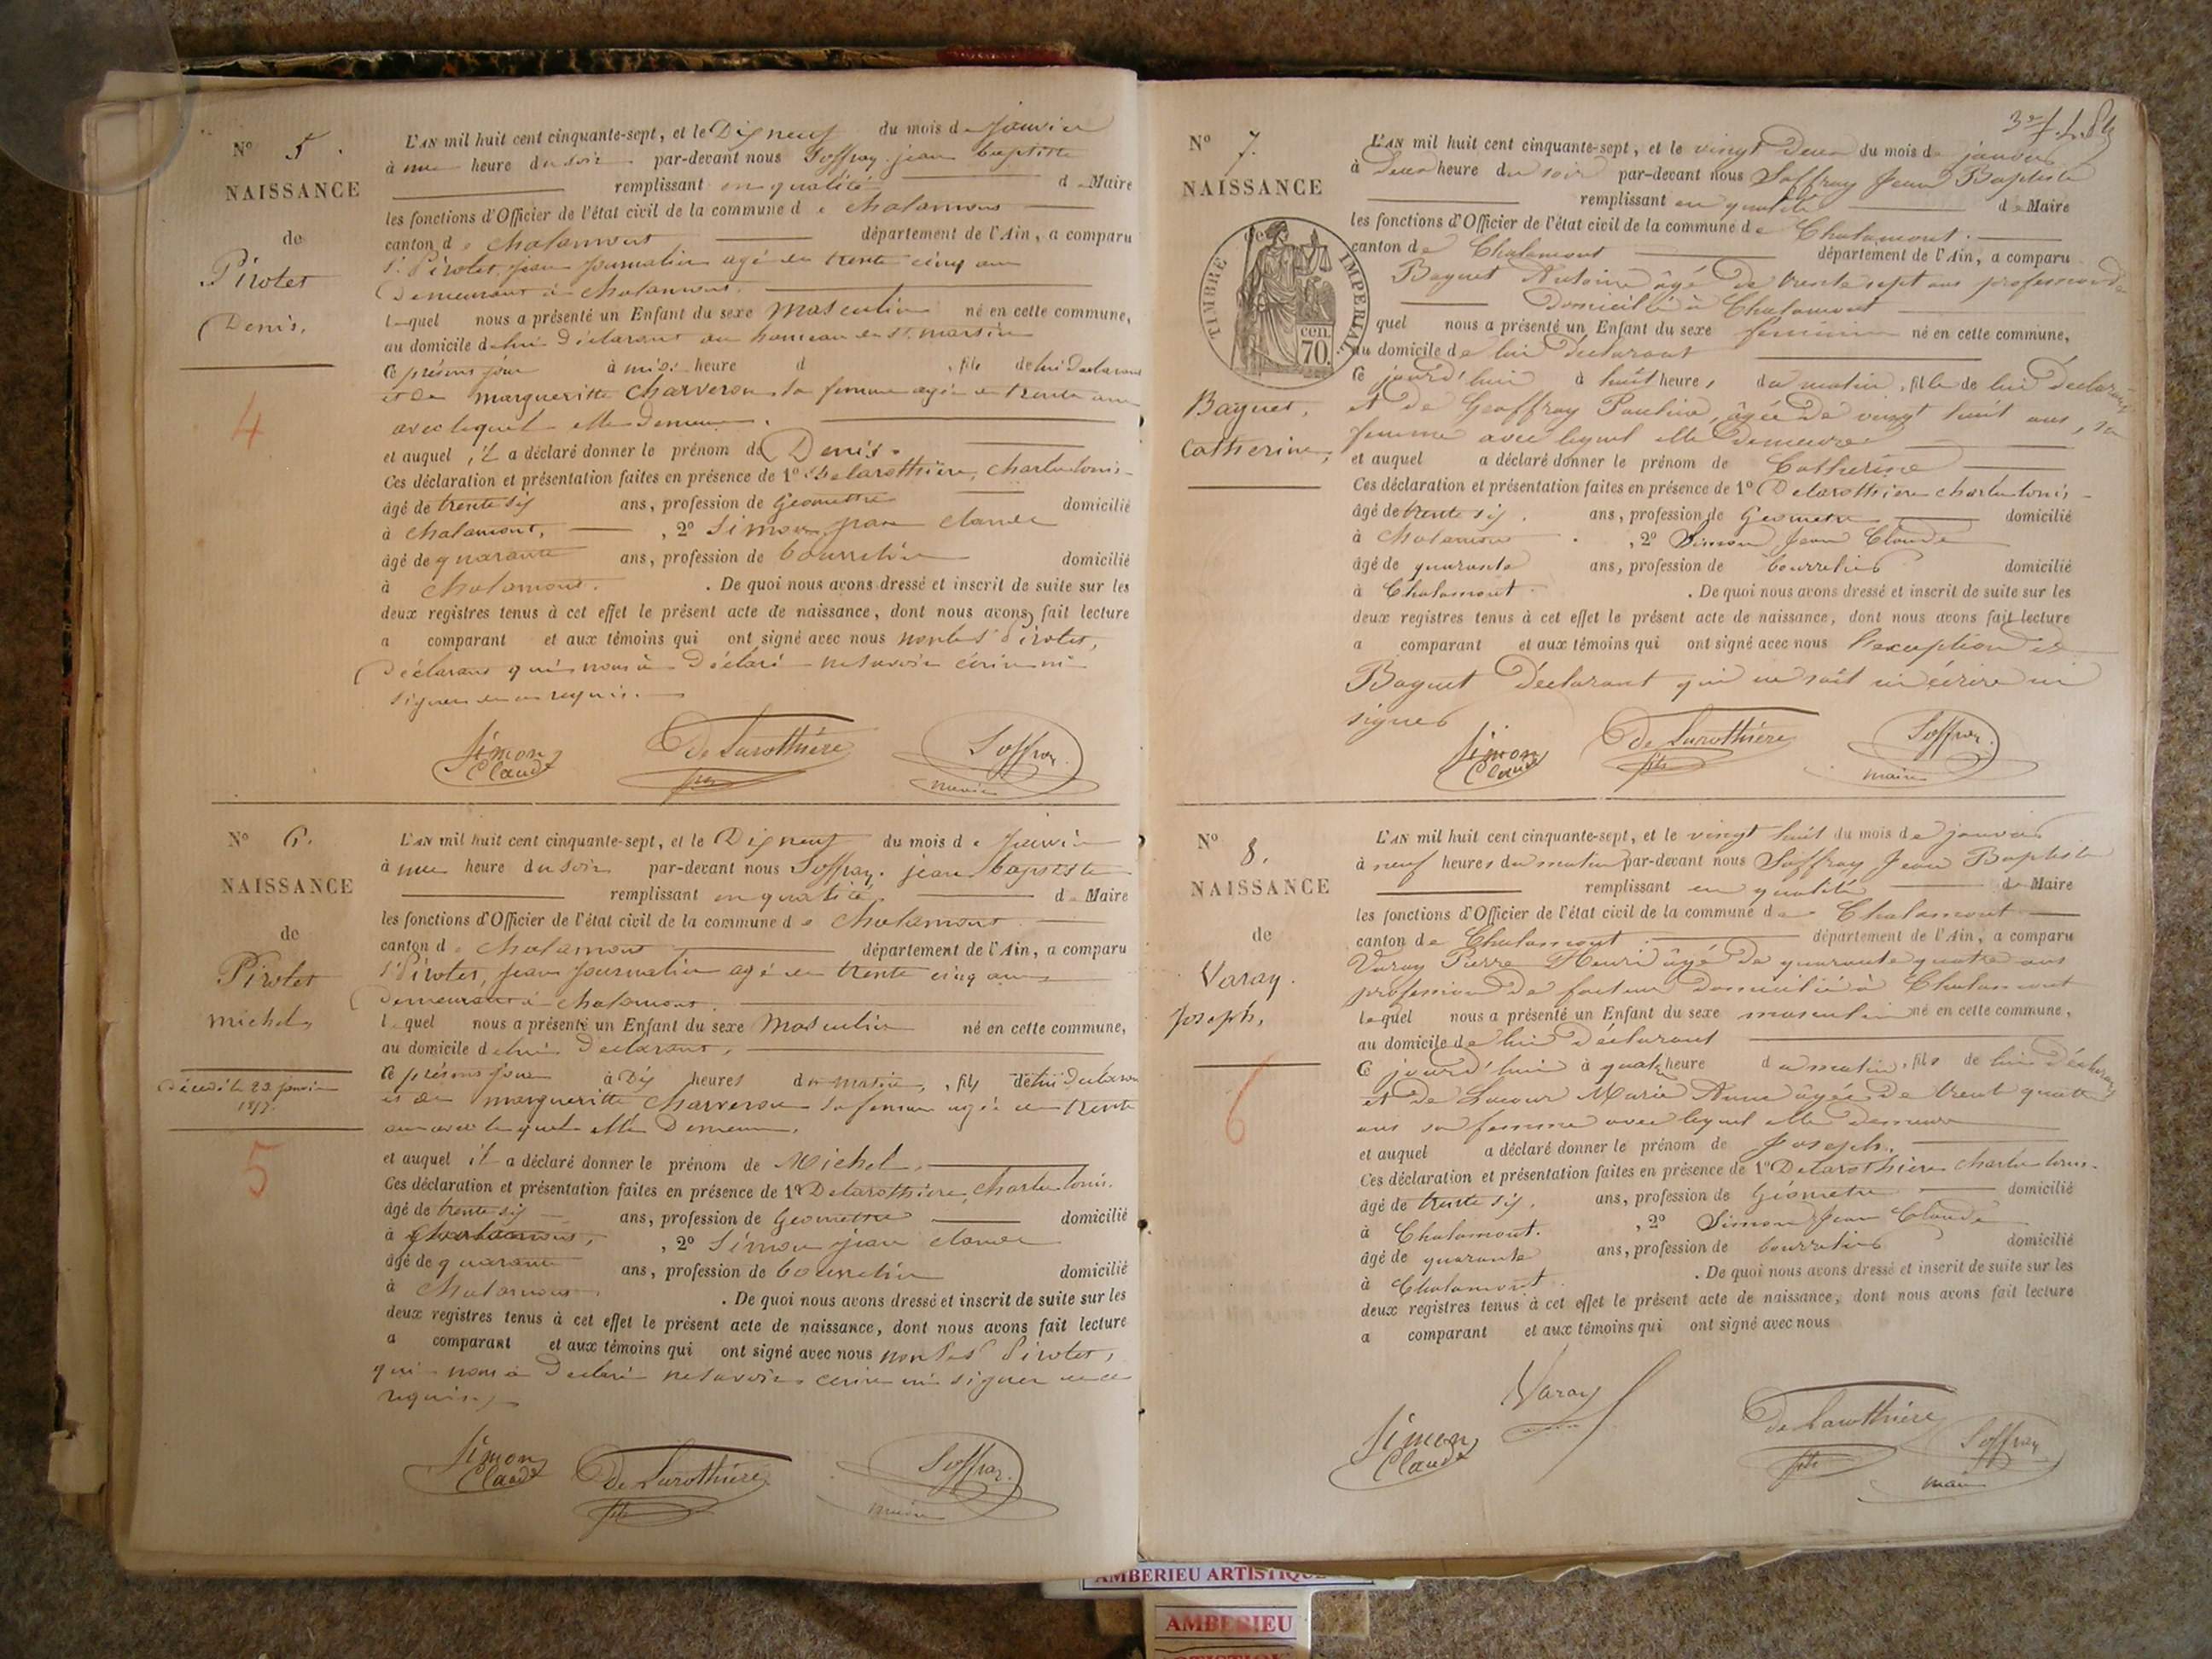 N° 5.
NAISSANCE
de
Pirolet
Denis,
4
L'AN mil huit cent cinquante-sept, et le Dix neuf du mois de Janvier
à une heure du soir par-devant nous Joffray jean baptiste
remplissant en qualité de Maire
les fonctions d'Officier de l'état civil de la commune de Chalamont
canton de Chalamont département de l'Ain, a comparu
Sr. Pirolet, jean journalier agé de trente cinq ans
Demeurant à Chalamont.
lequel nous a présenté un Enfant du sexe Masculin né en cette commune,
au domicile de lui Déclarant au hameau de St. martin
Ce présent jour à midi heure d , fils de lui Déclarant
et de margueritte Charveron sa femme agée de trente ans
avec lequel elle Demeure.
et auquel il a déclaré donner le prénom de Denis.
Ces déclaration et présentation faites en présence de 1° Delarothière, Charles louis
âgé de trente six ans, profession de Geomettre domicilié
à Chalamont, , 2° Simon jean claude
âgé de quarante ans, profession de bourrelier domicilié
à Chalamont. . De quoi nous avons dressé et inscrit de suite sur les
deux registres tenus à cet effet le présent acte de naissance, dont nous avons fait lecture
a comparant et aux témoins qui ont signé avec nous non le Sr. Pirolet,
Déclarant qui nous à Déclaré ne savoir écrire ni
signer de ce requis.
Simon Claude De Larothière fils Joffray maire
N° 6.
NAISSANCE
de
Pirolet
michel,
décédé le 23 janvier
1857.
5
L'AN mil huit cent cinquante-sept, et le Dix neuf du mois de Janvier
à une heure du soir par-devant nous Joffray. jean baptiste
remplissant en qualité de Maire
les fonctions d'Officier de l'état civil de la commune de Chalamont
canton de Chalamont département de l'Ain, a comparu
Sr. Pirolet, jean journalier agé de trente cinq ans
Demeurant à Chalamont.
lequel nous a présenté un Enfant du sexe Masculin né en cette commune,
au domicile de lui Déclarant,
Ce présent jour à Dix heures du matin, fils de lui Déclarant
et de margueritte Charveron sa femme agée de trente
ans avec lequel elle Demeure.
et auquel il a déclaré donner le prénom de Michel,
Ces déclaration et présentation faites en présence de 1° Delarothière, Charles louis.
âgé de trente six ans, profession de Geomettre domicilié
à Chalamont, , 2° Simon jean claude
âgé de quarante ans, profession de bourrelier domicilié
à Chalamont. . De quoi nous avons dressé et inscrit de suite sur les
deux registres tenus à cet effet le présent acte de naissance, dont nous avons fait lecture
a comparant et aux témoins qui ont signé avec nous non le Sr. Pirolet,
qui nous à Déclaré ne savoir écrire ni signer de ce
requis
Simon Claude De Larothière fils Joffray maire
N° 7.
NAISSANCE
de
TIMBRE IMPERIAL
70 cen.
Baguet,
Catherine,
L'AN mil huit cent cinquante-sept, et le vingt Deux du mois de janvier
à Deux heure du soir par-devant nous Joffray Jean Baptiste
remplissant en qualité de Maire
les fonctions d'Officier de l'état civil de la commune de Chalamont.
canton de Chalamont département de l'Ain, a comparu
Baguet Antoine âgé de trente sept ans profession de
Domicilié à Chalamont
quel nous a présenté un Enfant du sexe féminin né en cette commune,
au domicile de lui Déclarant
Ce jourd'hui à huit heures du matin, fille de lui Déclarant
et de Geoffray Pauline, âgée de vingt huit ans, sa
femme avec lequel elle Demeure
et auquel a déclaré donner le prénom de Catherine
Ces déclaration et présentation faites en présence de 1° Delarothière charles louis,
âgé de trente six. ans, profession de Geometre domicilié
à Chalamont . , 2° Simon Jean Claude
âgé de quarante ans, profession de bourrelier domicilié
à Chalamont. . De quoi nous avons dressé et inscrit de suite sur les
deux registres tenus à cet effet le présent acte de naissance, dont nous avons fait lecture
a comparant et aux témoins qui ont signé avec nous l'exception de
Baguet Déclarant qui ne sait ni écrire ni
signer
Simon Claude De Larothière fils Joffray maire
N° 8.
NAISSANCE
de
Varay.
Joseph,
6
L'AN mil huit cent cinquante-sept, et le vingt huit du mois de janvier
à neuf heures du matin par-devant nous Joffray Jean Baptiste
remplissant en qualité de Maire
les fonctions d'Officier de l'état civil de la commune de Chalamont
canton de Chalamont. département de l'Ain, a comparu
Varay Pierre Henri âgé de quarante quatre ans
profession de facteur domicilié à Chalamont
lequel nous a présenté un Enfant du sexe masculin né en cette commune,
au domicile de lui Déclarant
Ce jourd'hui à quatre heure du matin, fils de lui Déclarant
et de Lacour Marie Anne âgée de trente quatre
ans sa femme avec lequel elle demeure
et auquel a déclaré donner le prénom de Joseph.
Ces déclaration et présentation faites en présence de 1° Delarothière Charles louis.
âgé de trente six. ans, profession de Géometre domicilié
à Chalamont. , 2° Simon Jean Claude
âgé de quarante ans, profession de bourrelier domicilié
à Chalamont. . De quoi nous avons dressé et inscrit de suite sur les
deux registres tenus à cet effet le présent acte de naissance, dont nous avons fait lecture
a comparant et aux témoins qui ont signé avec nous
Varay
Simon Claude De Larothière fils Joffray maire
AMBERIEU ARTISTIQUE
AMBERIEU